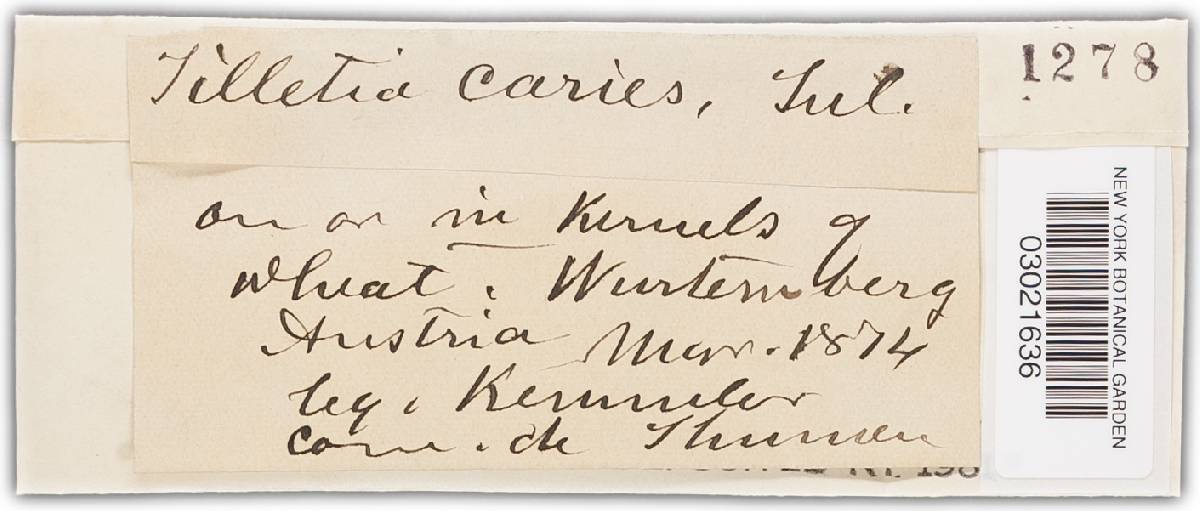 Tilletia caries, Tul.
1278
on or in Kernels of
wheat. Wurtemberg
Austria Mar. 1874
leg. Kemmler
com. de Thumen
NEW YORK BOTANICAL GARDEN
03021636